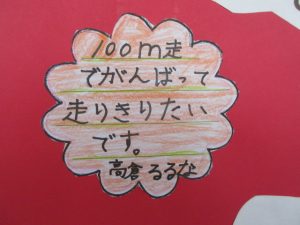 100m走
でがんばって
走りきりたい
です。
高倉るるな